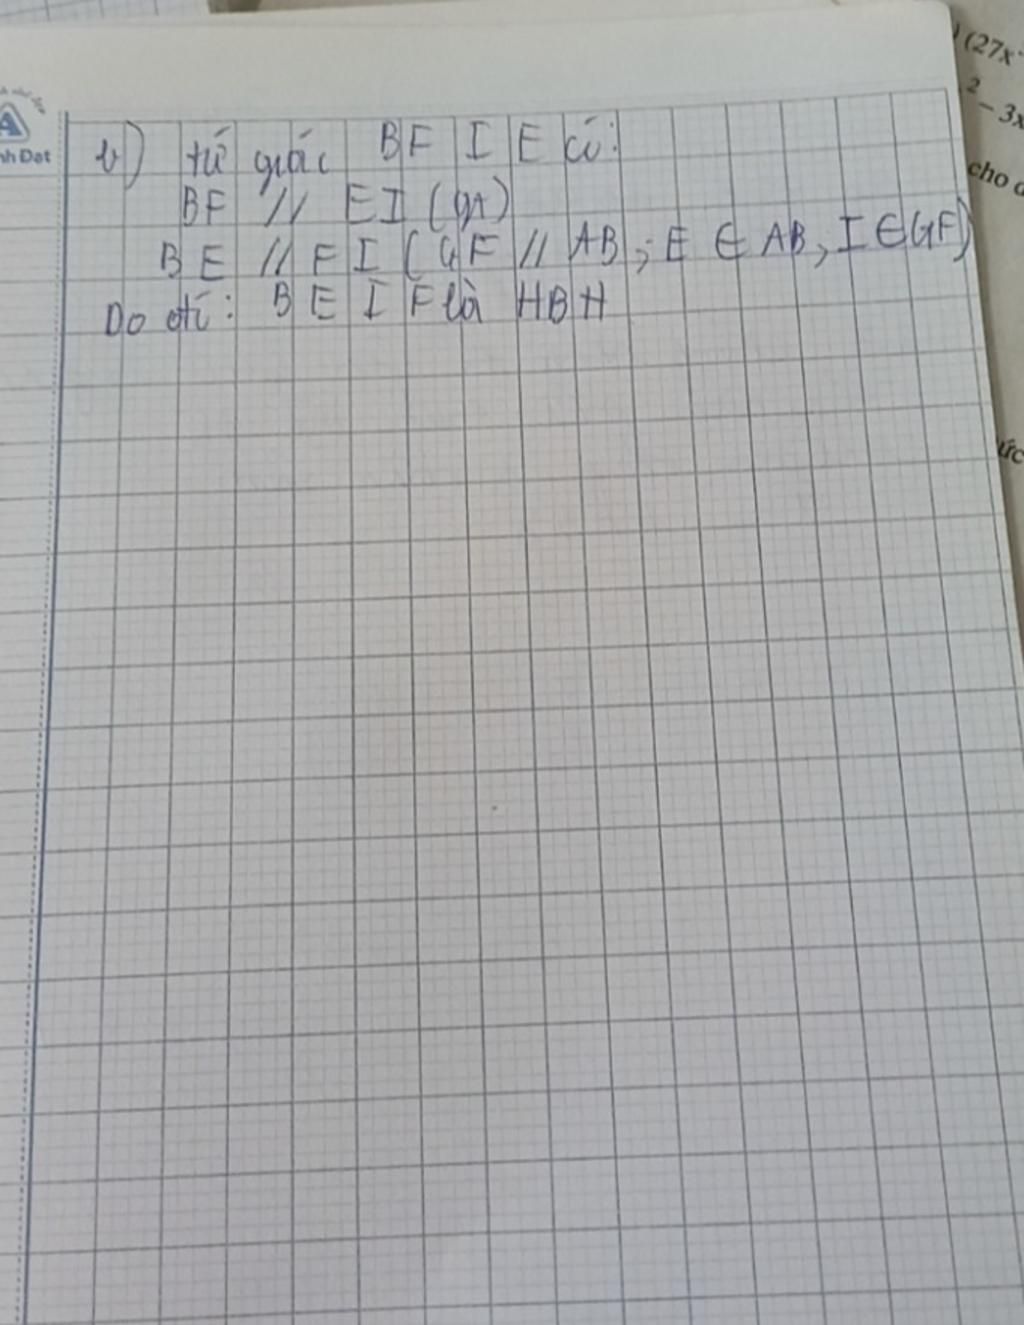 b) tứ giác BF I E có:
BF // EI (gt)
BE // FI (GF // AB; E ∈ AB, I ∈ GF)
Do đó: BEIF là HBH
nh Đạt
(27x
2 – 3x
cho
ức